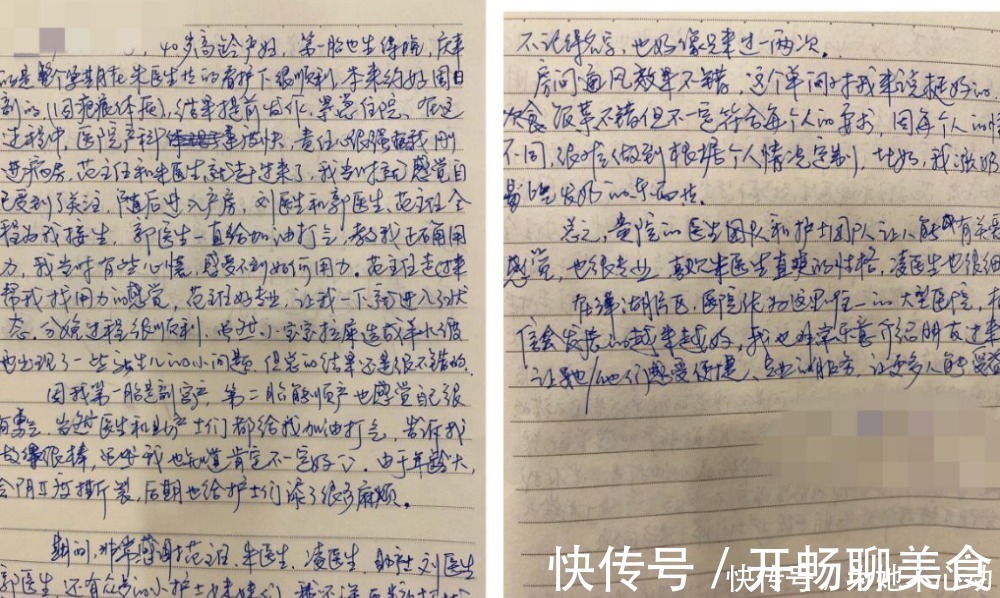 ，40岁高龄产妇，第一胎也生得晚，庆幸
的是整个孕期在朱医生的看护下很顺利，本来约好周日
剖的，(因疤痕体质)，结果提前发作，紧急住院。在这
过程中，医院产科速度快，责任心很强，我刚
进病房，范主任和朱医生就过来了，我当时就感觉自
己受到了关注，随后进入产房，刘医生和郭医生、范主任全
程为我接生，郭医生一直给加油打气，教我正确用
力，我当时有些心慌，感受不到如何用力。范主任走过来
帮我找用力的感觉，范主任好专业，让我一下就进入了状
态。分娩过程很顺利，虽然小宝宝拉屎造成羊水
也出现了一些新生儿的小问题，但总的结果还是很不错的。
因我第一胎是剖宫产，第二胎能顺产也感觉自己很
有勇气，当时医生和助产士们都给我加油打气，告诉我
做得很棒，虽然我也知道肯定不一定好。由于年龄大，
会阴II度撕裂，后期也给护士们添了很多麻烦。
期间，非常感谢范主任、朱医生、凌医生、助产士刘医生
郭医生，还有众多的小护士
不记得名字，也好像只来过一两次。
房间通风效果不错，这个单间对我来说挺好的，
饮食饭菜不错但不一定符合每个人的要求，因每个人的
不同，很难做到根据个人情况定制，
总之，贵院的医生团队和护士团队让人能有
感觉，也很专业，喜欢朱医生直爽的性格，凌医生也很细
在泽湖片区，医院作为这里唯一的大型医院，
信会发展的越来越好，我也非常乐意介绍朋友过来
让她/他们感受便捷、专业的服务，让更多人能受益
快传号/开畅聊美食
快传号